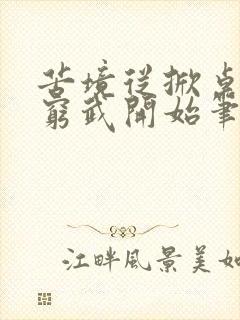 苦境從掀桌
窮武開始筆
江畔風景美如